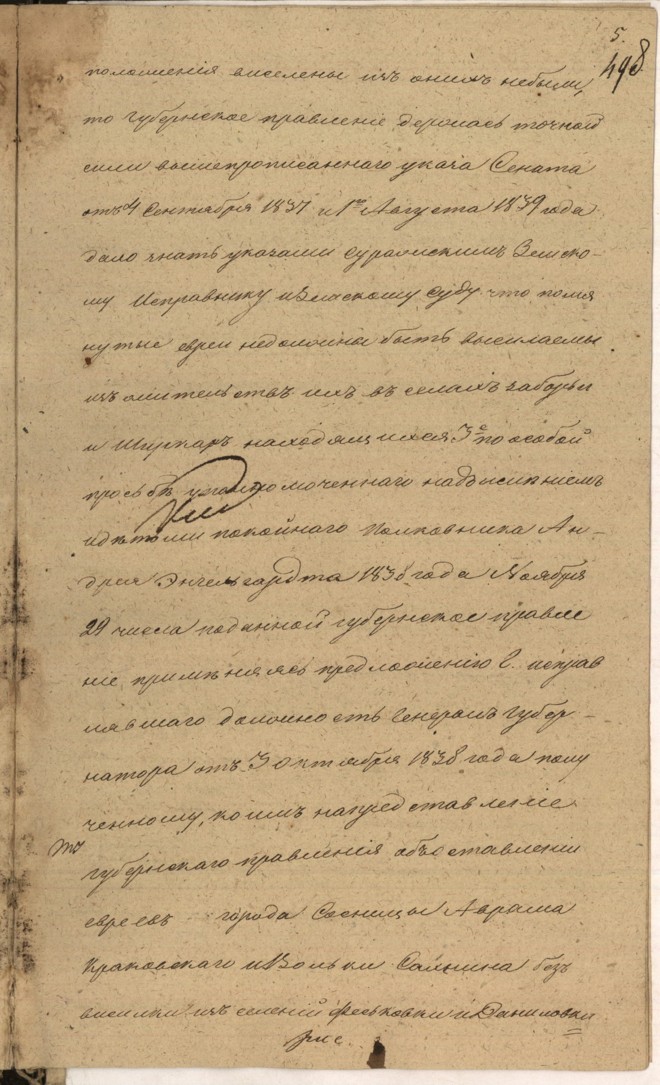 5.
498
положения виселены изъ онихъ небыли,
то губернское правление держась точной
сили вышепрописаннаго указа Сената
отъ 4 Сентября 1837 и 1го Августа 1839 года
дало знать указами Суражскимъ Земско-
му Исправнику и Земскому Суду что помя
нутые евреи недолжны быть висилаемы
изъ жительствъ ихъ въ селахъ
и находящихся 3е по особой
просьбѣ уполномоченнаго
идѣтми покойнаго Полковника Ан-
дрея Энгельгардта 1838 года Ноября
29 числа поданной губернское правле
ние примѣняясь предложению Г. исправ
лявшаго должность Генералъ Губер-
натора отъ 3 октября 1838 года полу
ченному, коимъ напредставление
губернскаго правления объ оставлении
евреевъ города Сосницы Аврама
Краковскаго и Вольки Салнина безъ
висилки изъ селений Феськовки и Даниловки